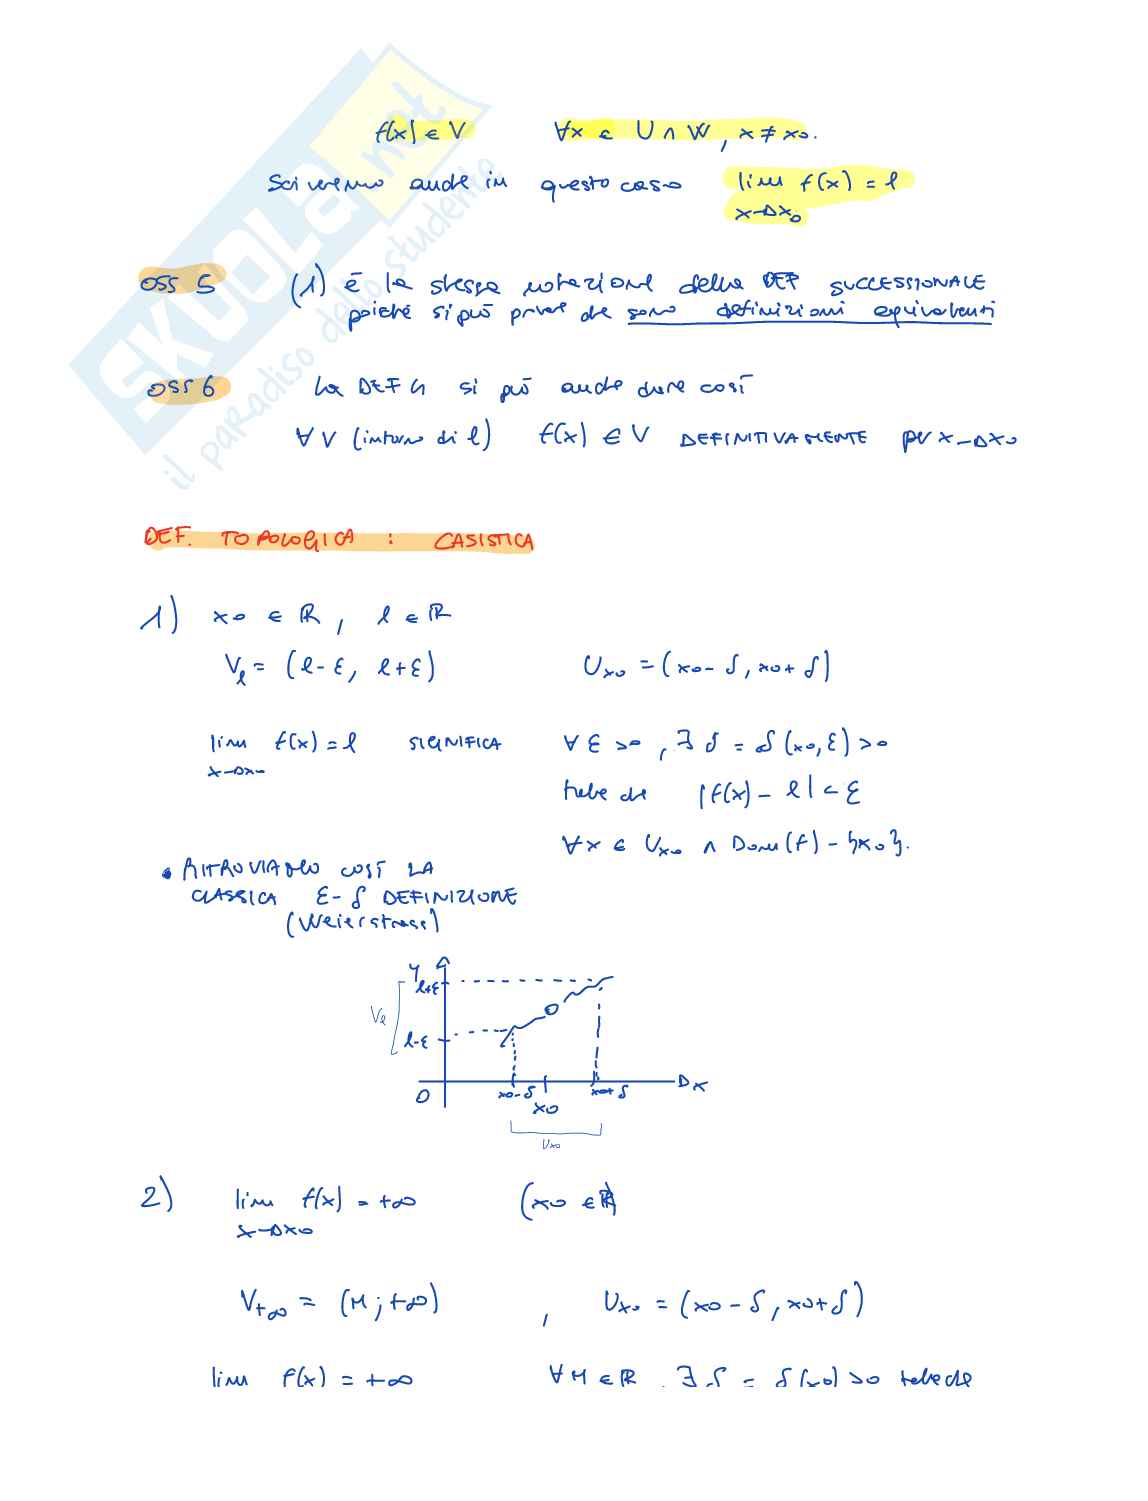 f(x) ∈ V ∀x ∈ U ∩ W, x ≠ x0.
Scriveremo anche in questo caso lim f(x) = l
x→x0
OSS 5 (1) è la stessa notazione della DEF SUCCESSIONALE
poiché si può provare che sono definizioni equivalenti
OSS 6 La DEF 4 si può anche dare così
∀ V (intorno di l) f(x) ∈ V DEFINITIVAMENTE per x→x0
DEF. TOPOLOGICA : CASISTICA
1) x0 ∈ ℝ, l ∈ ℝ
V_l = (l-ε, l+ε) U_x0 = (x0-δ, x0+δ)
lim f(x) = l SIGNIFICA ∀ ε > 0, ∃ δ = δ(x0, ε) > 0
x→x0
tale che |f(x) - l| < ε
∀x ∈ U_x0 ∩ Dom(f) - {x0}.
• RITROVIAMO COSÌ LA
CLASSICA ε-δ DEFINIZIONE
(Weierstrass)
y
l+ε
V_l
l-ε
0 x0-δ x0 x0+δ x
U_x0
2) lim f(x) = +∞ (x0 ∈ ℝ)
x→x0
V_+∞ = (M; +∞) , U_x0 = (x0-δ, x0+δ)
lim f(x) = +∞ ∀ M ∈ ℝ, ∃ δ = δ(x0) > 0 tale che
SKUOLA.net
il paradiso dello studente